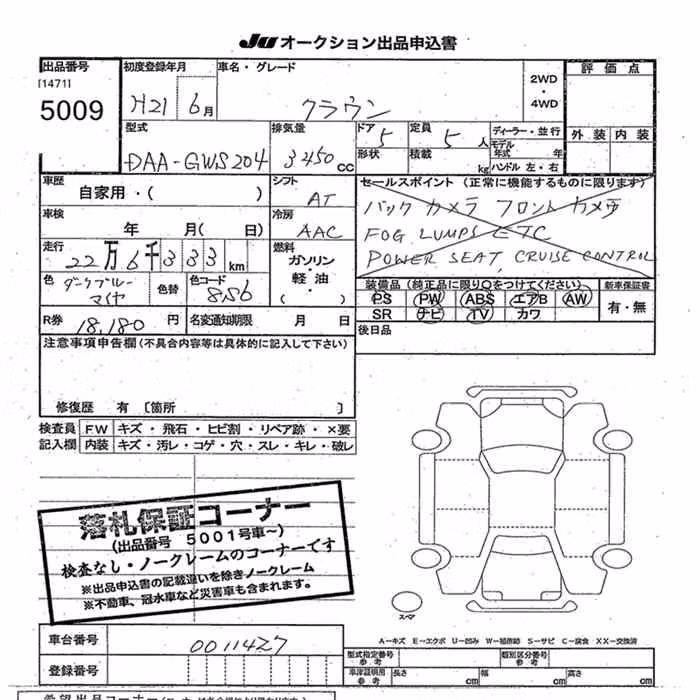 JU オークション出品申込書
出品番号 初度登録年月 車名・グレード 2WD・4WD 評価点
[1471]
5009 H21 6月 クラウン
型式 排気量 ドア 5 定員 5人 ディーラー・並行 外装 内装
DAA-GWS204 3450cc 形状 積載 kg モデル年式 年 ハンドル 左・右
車歴 自家用・( ) シフト AT セールスポイント (正常に機能するものに限ります)
車検 年 月( 日) 冷房 AAC バックカメラ フロントカメラ
走行 22万6千333km 燃料 ガソリン・軽油・( ) FOG LUMPS ETC
POWER SEAT, CRUISE CONTROL
色 ダークブルーマイカ 色替 色コード 8S6 装備品 (純正品に限り○をつけてください) 新車保証書
PS PW ABS エアB AW 有・無
R券 18,180円 名変通知期限 月 日 SR ナビ TV カワ
注意事項申告欄(不具合内容等は具体的に記入して下さい) 後日品
修復歴 有 〔箇所 〕
検査員 FW キズ・飛石・ヒビ割・リペア跡・×要
記入欄 内装 キズ・汚レ・コゲ・穴・スレ・キレ・破レ
落札保証コーナー
(出品番号 5001号車~)
検査なし・ノークレームのコーナーです
※出品申込書の記載違いを除きノークレーム
※不動車、冠水車など災害車も含まれます。
スペア
A-キズ E-エクボ U-凹み W-補修跡 S-サビ C-腐食 XX-交換済
車台番号 0011427 型式指定番号 参考 類別区分番号 参考
登録番号 車庫証明用 参考 長さ cm 幅 cm 高さ cm